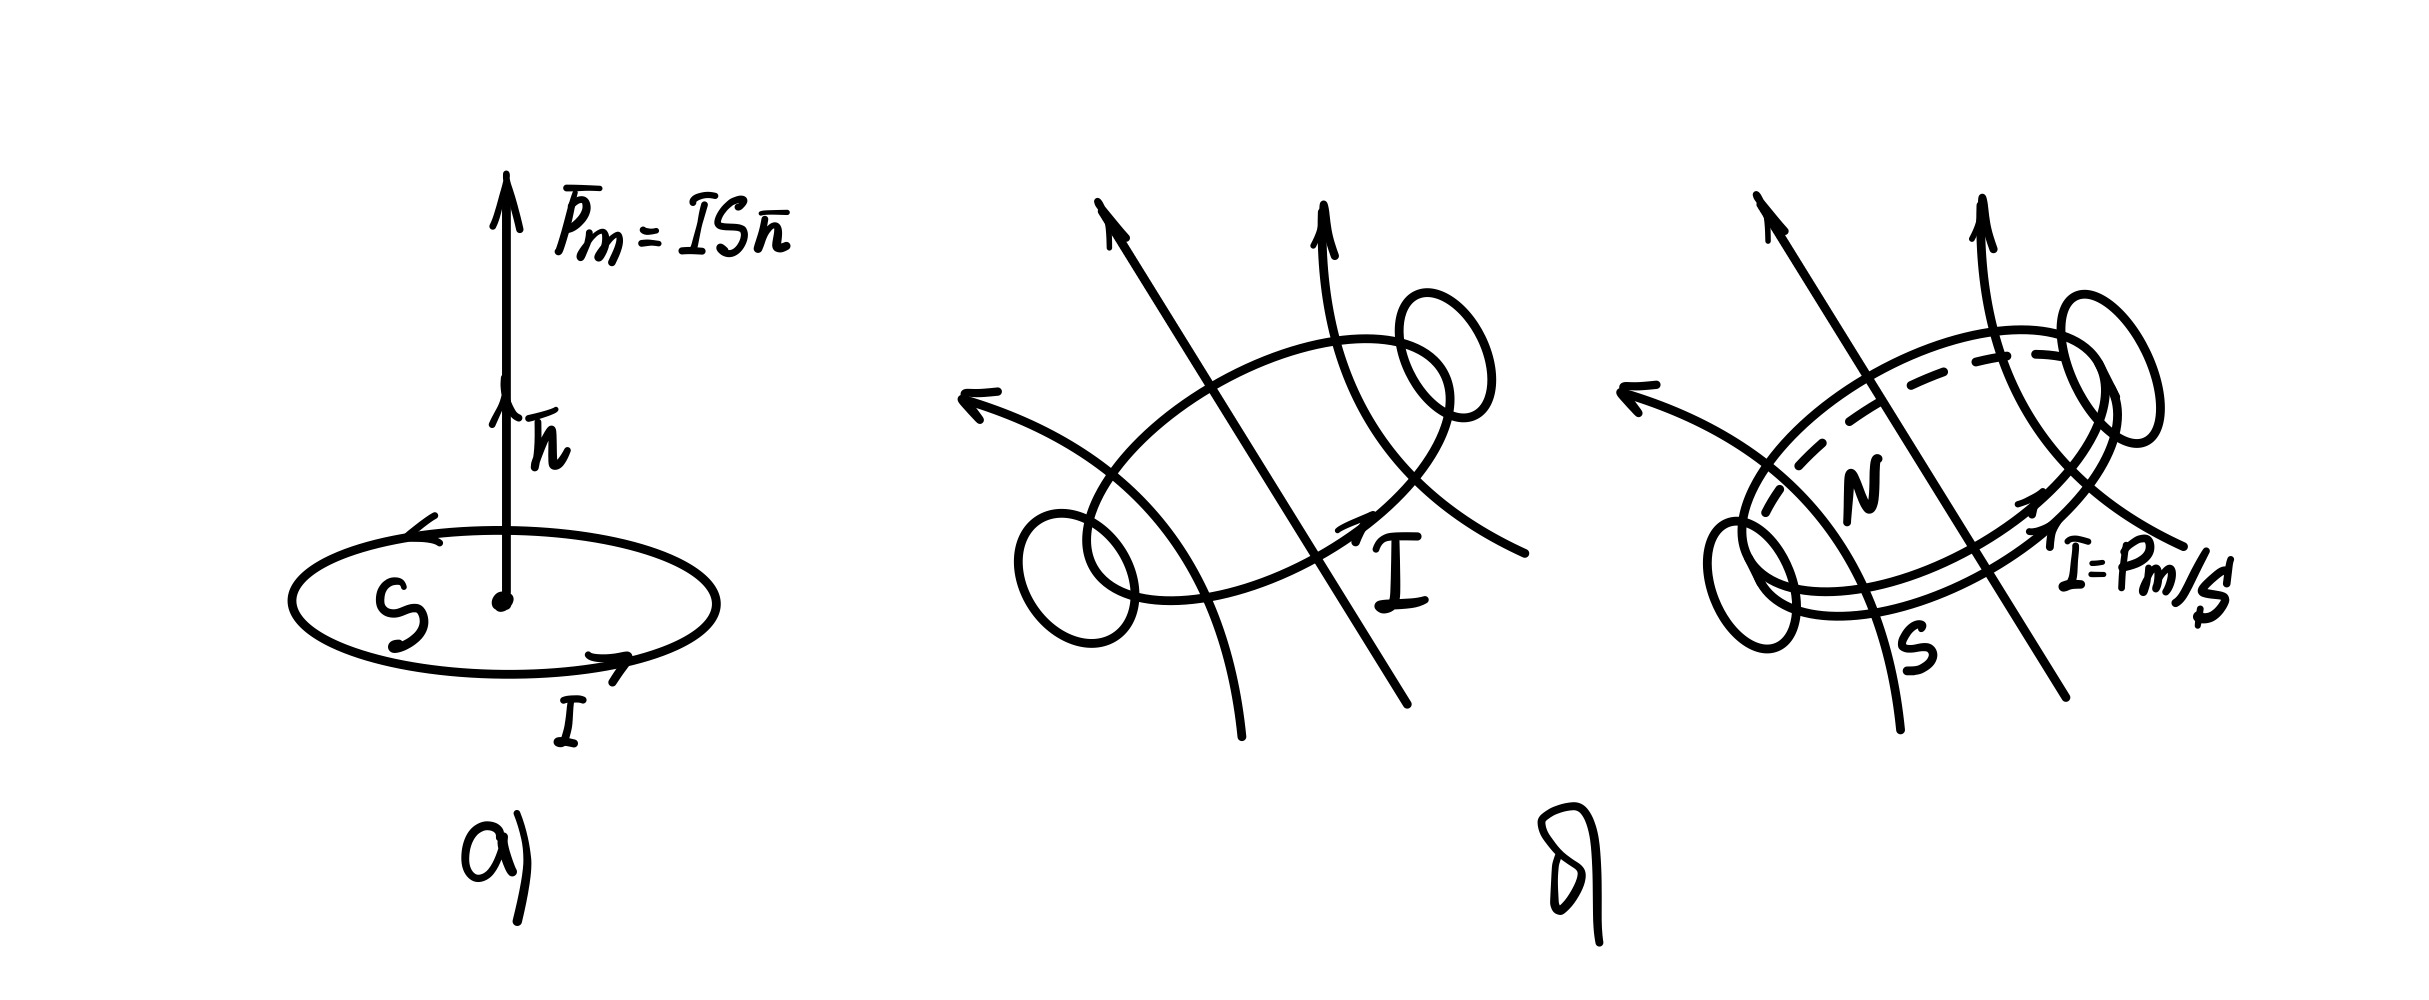 p̅m = ISn̅
n̅
S
I
a)
I
N
I = Pm/S
S
б)